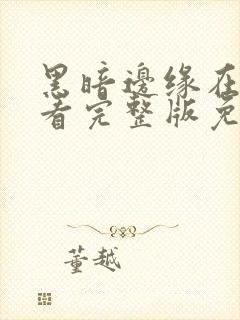 黑暗邊缘在
看完整版免
董越